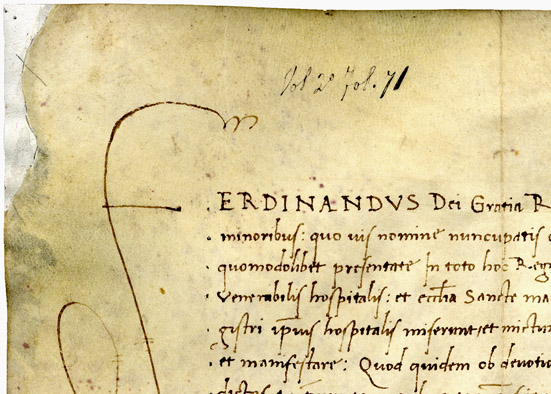 Vol 2º Fol. 71
FERDINANDVS Dei Gratia R
minoribus: quo uis nomine nuncupatis
quomodolibet presentate In toto hoc Reg
venerabilis hospitalis: et eccĺia Sancte ma
gistri ipsius hospitalis miserunt, et
et manifestare: Quod quidem ob devotio